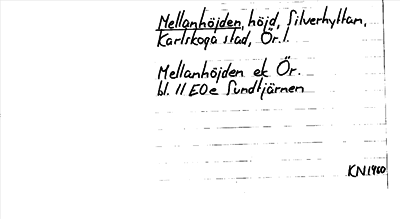 Mellanhöjden, höjd, Silverhyttan,
Karlskoga stad, Ör. l.
Mellanhöjden ek Ör.
bl. 11 E0e Sundtjärnen
KN 1960